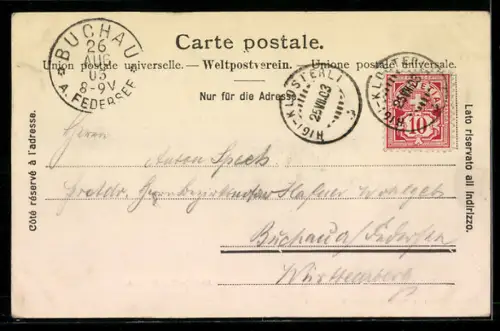 BUCHAU
26
AUG
03
8-9V
A. FEDERSEE
Carte postale.
Union postale universelle. — Weltpostverein. — Unione postale universale.
Nur für die Adresse.
RIGI-KLÖSTERLI
25 VIII 03
RIGI-KLÖSTERLI
25 VIII 03
HELVETIA
10
Côté réservé à l'adresse.
Lato riservato all indirizzo.
Herrn
Anton Speck
Hafner Wohlgeb
Buchau a/Federsee
Württemberg